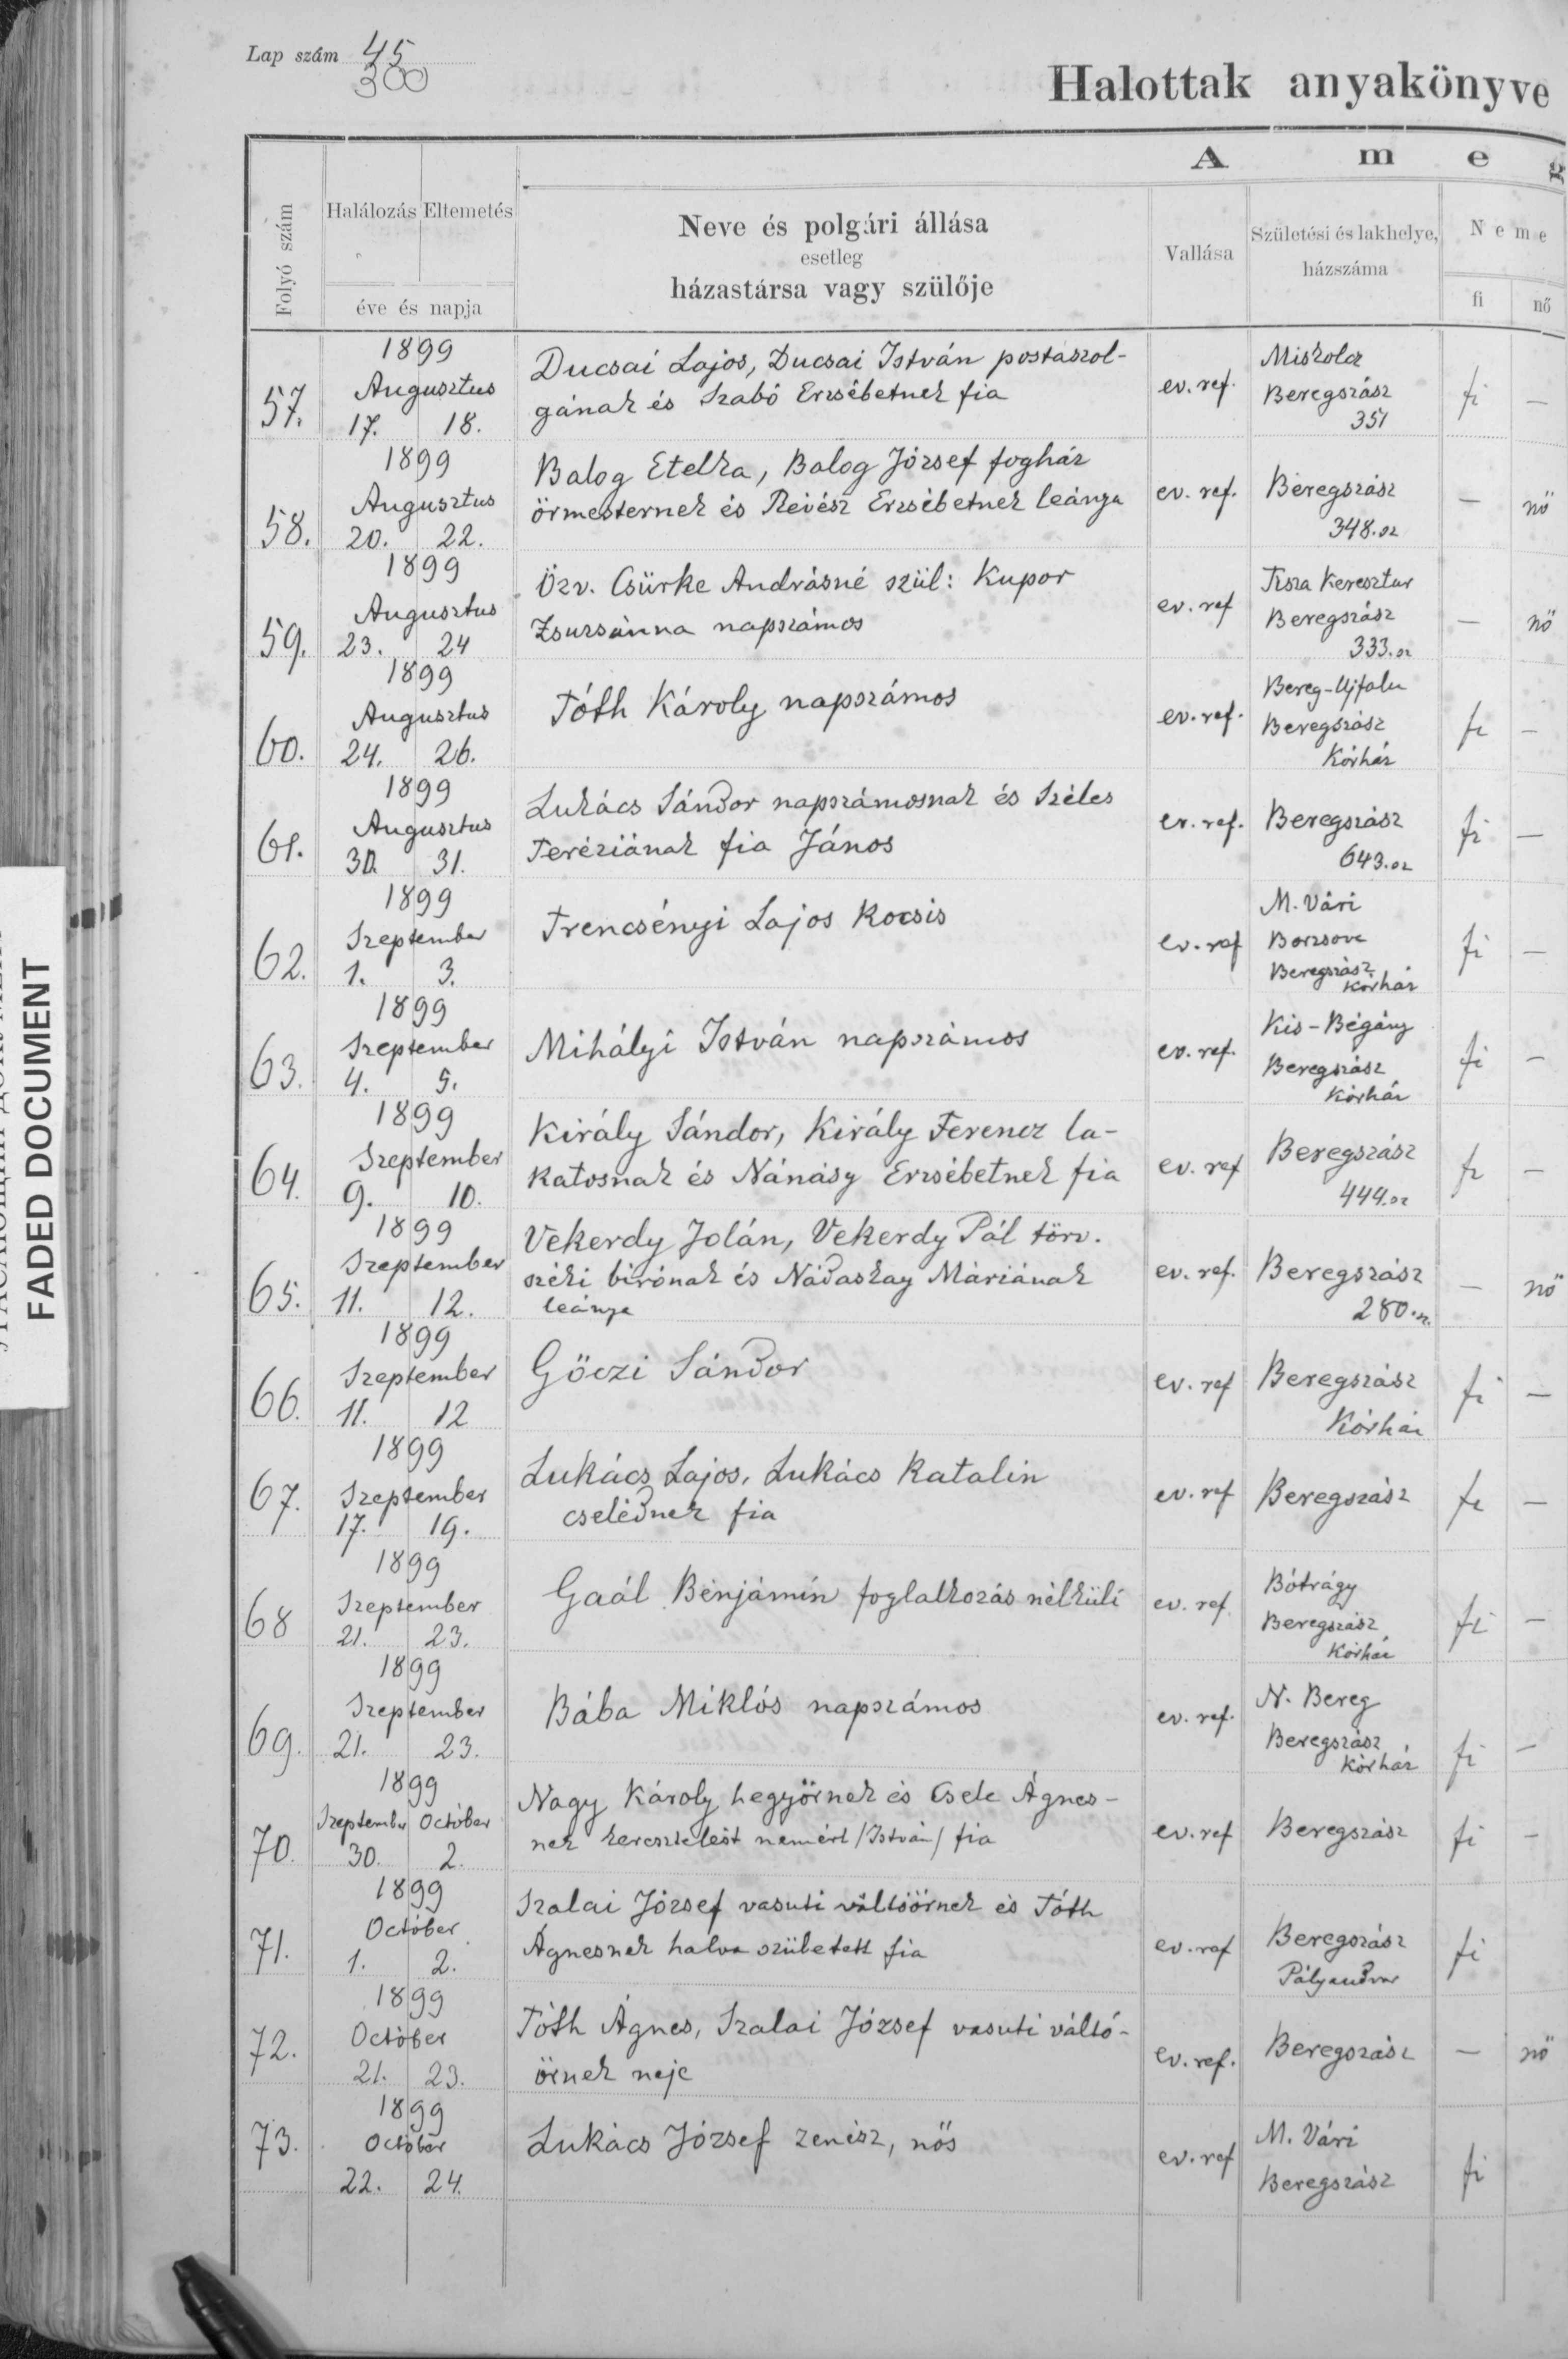 Lap szám 45
300
Halottak anyakönyve
A m e g
Folyó szám
Halálozás Eltemetés
éve és napja
Neve és polgári állása
esetleg
házastársa vagy szülője
Vallása
Születési és lakhelye,
házszáma
Neme
fi nő
1899
57. Augusztus 17. 18.
Ducsai Lajos, Ducsai István postaszol-
gának és Szabó Erzsébetnek fia
ev. ref.
Miskolcz
Beregszász
351
fi —
1899
58. Augusztus 20. 22.
Balog Etelka, Balog József fogház
örmesternek és Révész Erzsébetnek leánya
ev. ref.
Beregszász
348. sz
— nő
1899
59. Augusztus 23. 24
Özv. Csürke Andrásné szül: Kupor
Zsuzsánna napszámos
ev. ref
Tisza Keresztur
Beregszász
333. sz
— nő
1899
60. Augusztus 24. 26.
Tóth Károly napszámos
ev. ref.
Bereg-Ujfalu
Beregszász
Kórház
fi —
1899
61. Augusztus 30. 31.
Lukács Sándor napszámosnak és Széles
Teréziának fia János
ev. ref.
Beregszász
643. sz
fi —
1899
62. Szeptember 1. 3.
Trencsényi Lajos Kocsis
ev. ref
M. Vári
Borzsova
Beregszász
Kórház
fi —
1899
63. Szeptember 4. 5.
Mihályi István napszámos
ev. ref.
Kis-Bégány
Beregszász
Kórház
fi —
1899
64. Szeptember 9. 10.
Király Sándor, Király Ferencz la-
katosnak és Nánásy Erzsébetnek fia
ev. ref
Beregszász
444. sz
fi —
1899
65. Szeptember 11. 12.
Vekerdy Jolán, Vekerdy Pál törv.
széki birónak és Nádaskay Máriának
leánya
ev. ref.
Beregszász
280. sz.
— nő
1899
66. Szeptember 11. 12
Göczi Sándor
ev. ref
Beregszász
Kórház
fi —
1899
67. Szeptember 17. 19.
Lukács Lajos, Lukács Katalin
cselédnek fia
ev. ref
Beregszász
fi —
1899
68 Szeptember 21. 23.
Gaál Benjámin foglalkozás nélküli
ev. ref.
Bótrágy
Beregszász
Kórház
fi —
1899
69. Szeptember 21. 23.
Bába Miklós napszámos
ev. ref.
N. Bereg
Beregszász
Kórház
fi —
1899
70. Szeptember October 30. 2.
Nagy Károly hegyörnek és Csete Ágnes-
nek keresztelést nemért /István/ fia
ev. ref
Beregszász
fi —
1899
71. October 1. 2.
Szalai József vasuti váltóörnek és Tóth
Ágnesnek halva született fia
ev. ref
Beregszász
Pályaudvar
fi
1899
72. October 21. 23.
Tóth Ágnes, Szalai József vasuti váltó-
örnek neje
ev. ref.
Beregszász
— nő
1899
73. October 22. 24.
Lukács József zenész, nős
ev. ref
M. Vári
Beregszász
fi
FADED DOCUMENT